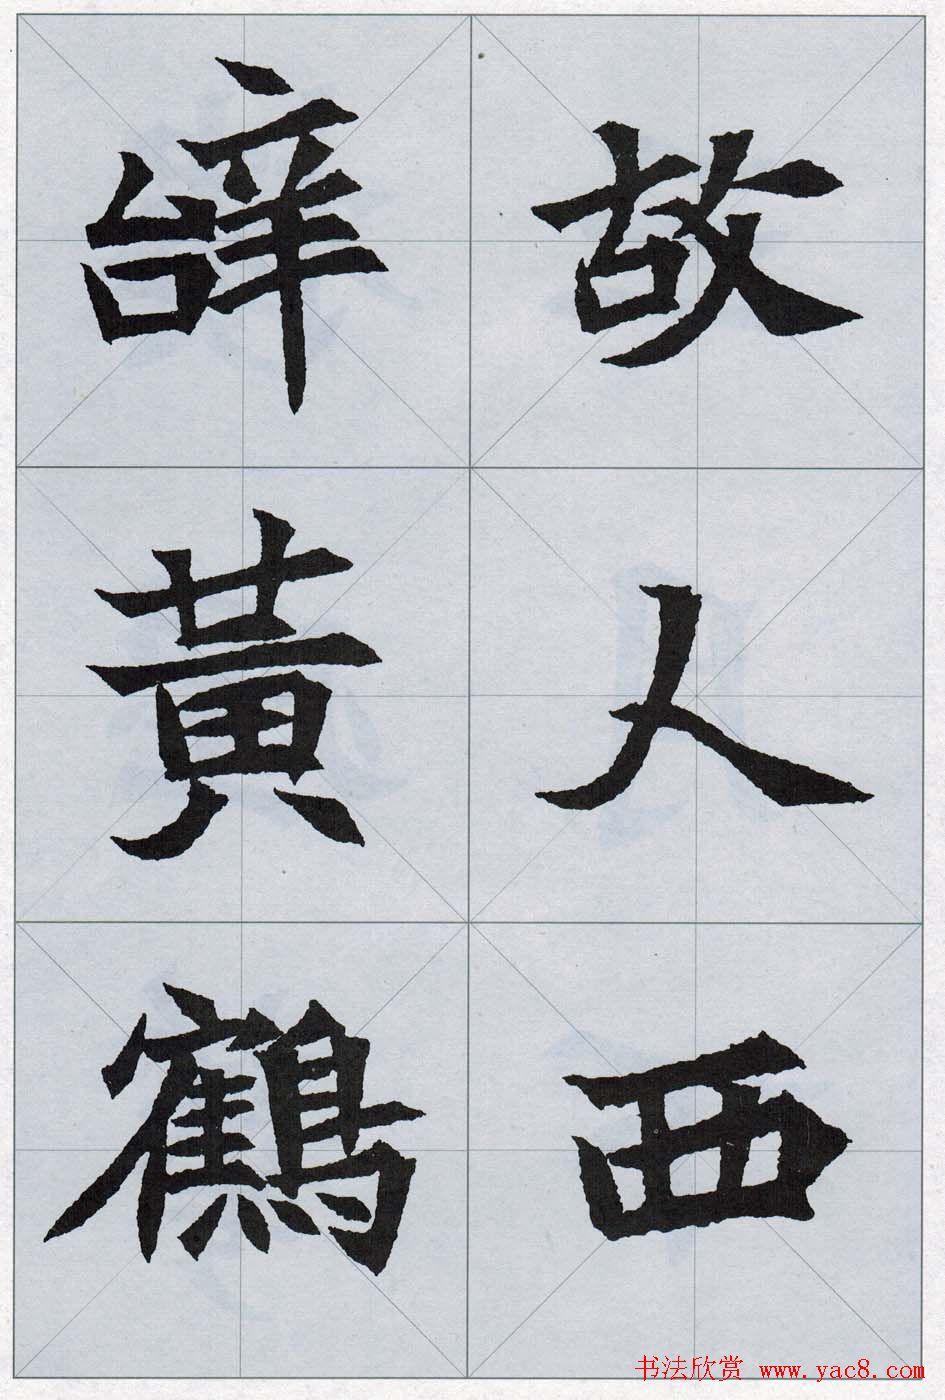 故人西
辝黃鶴
书法欣赏 www.yac8.com